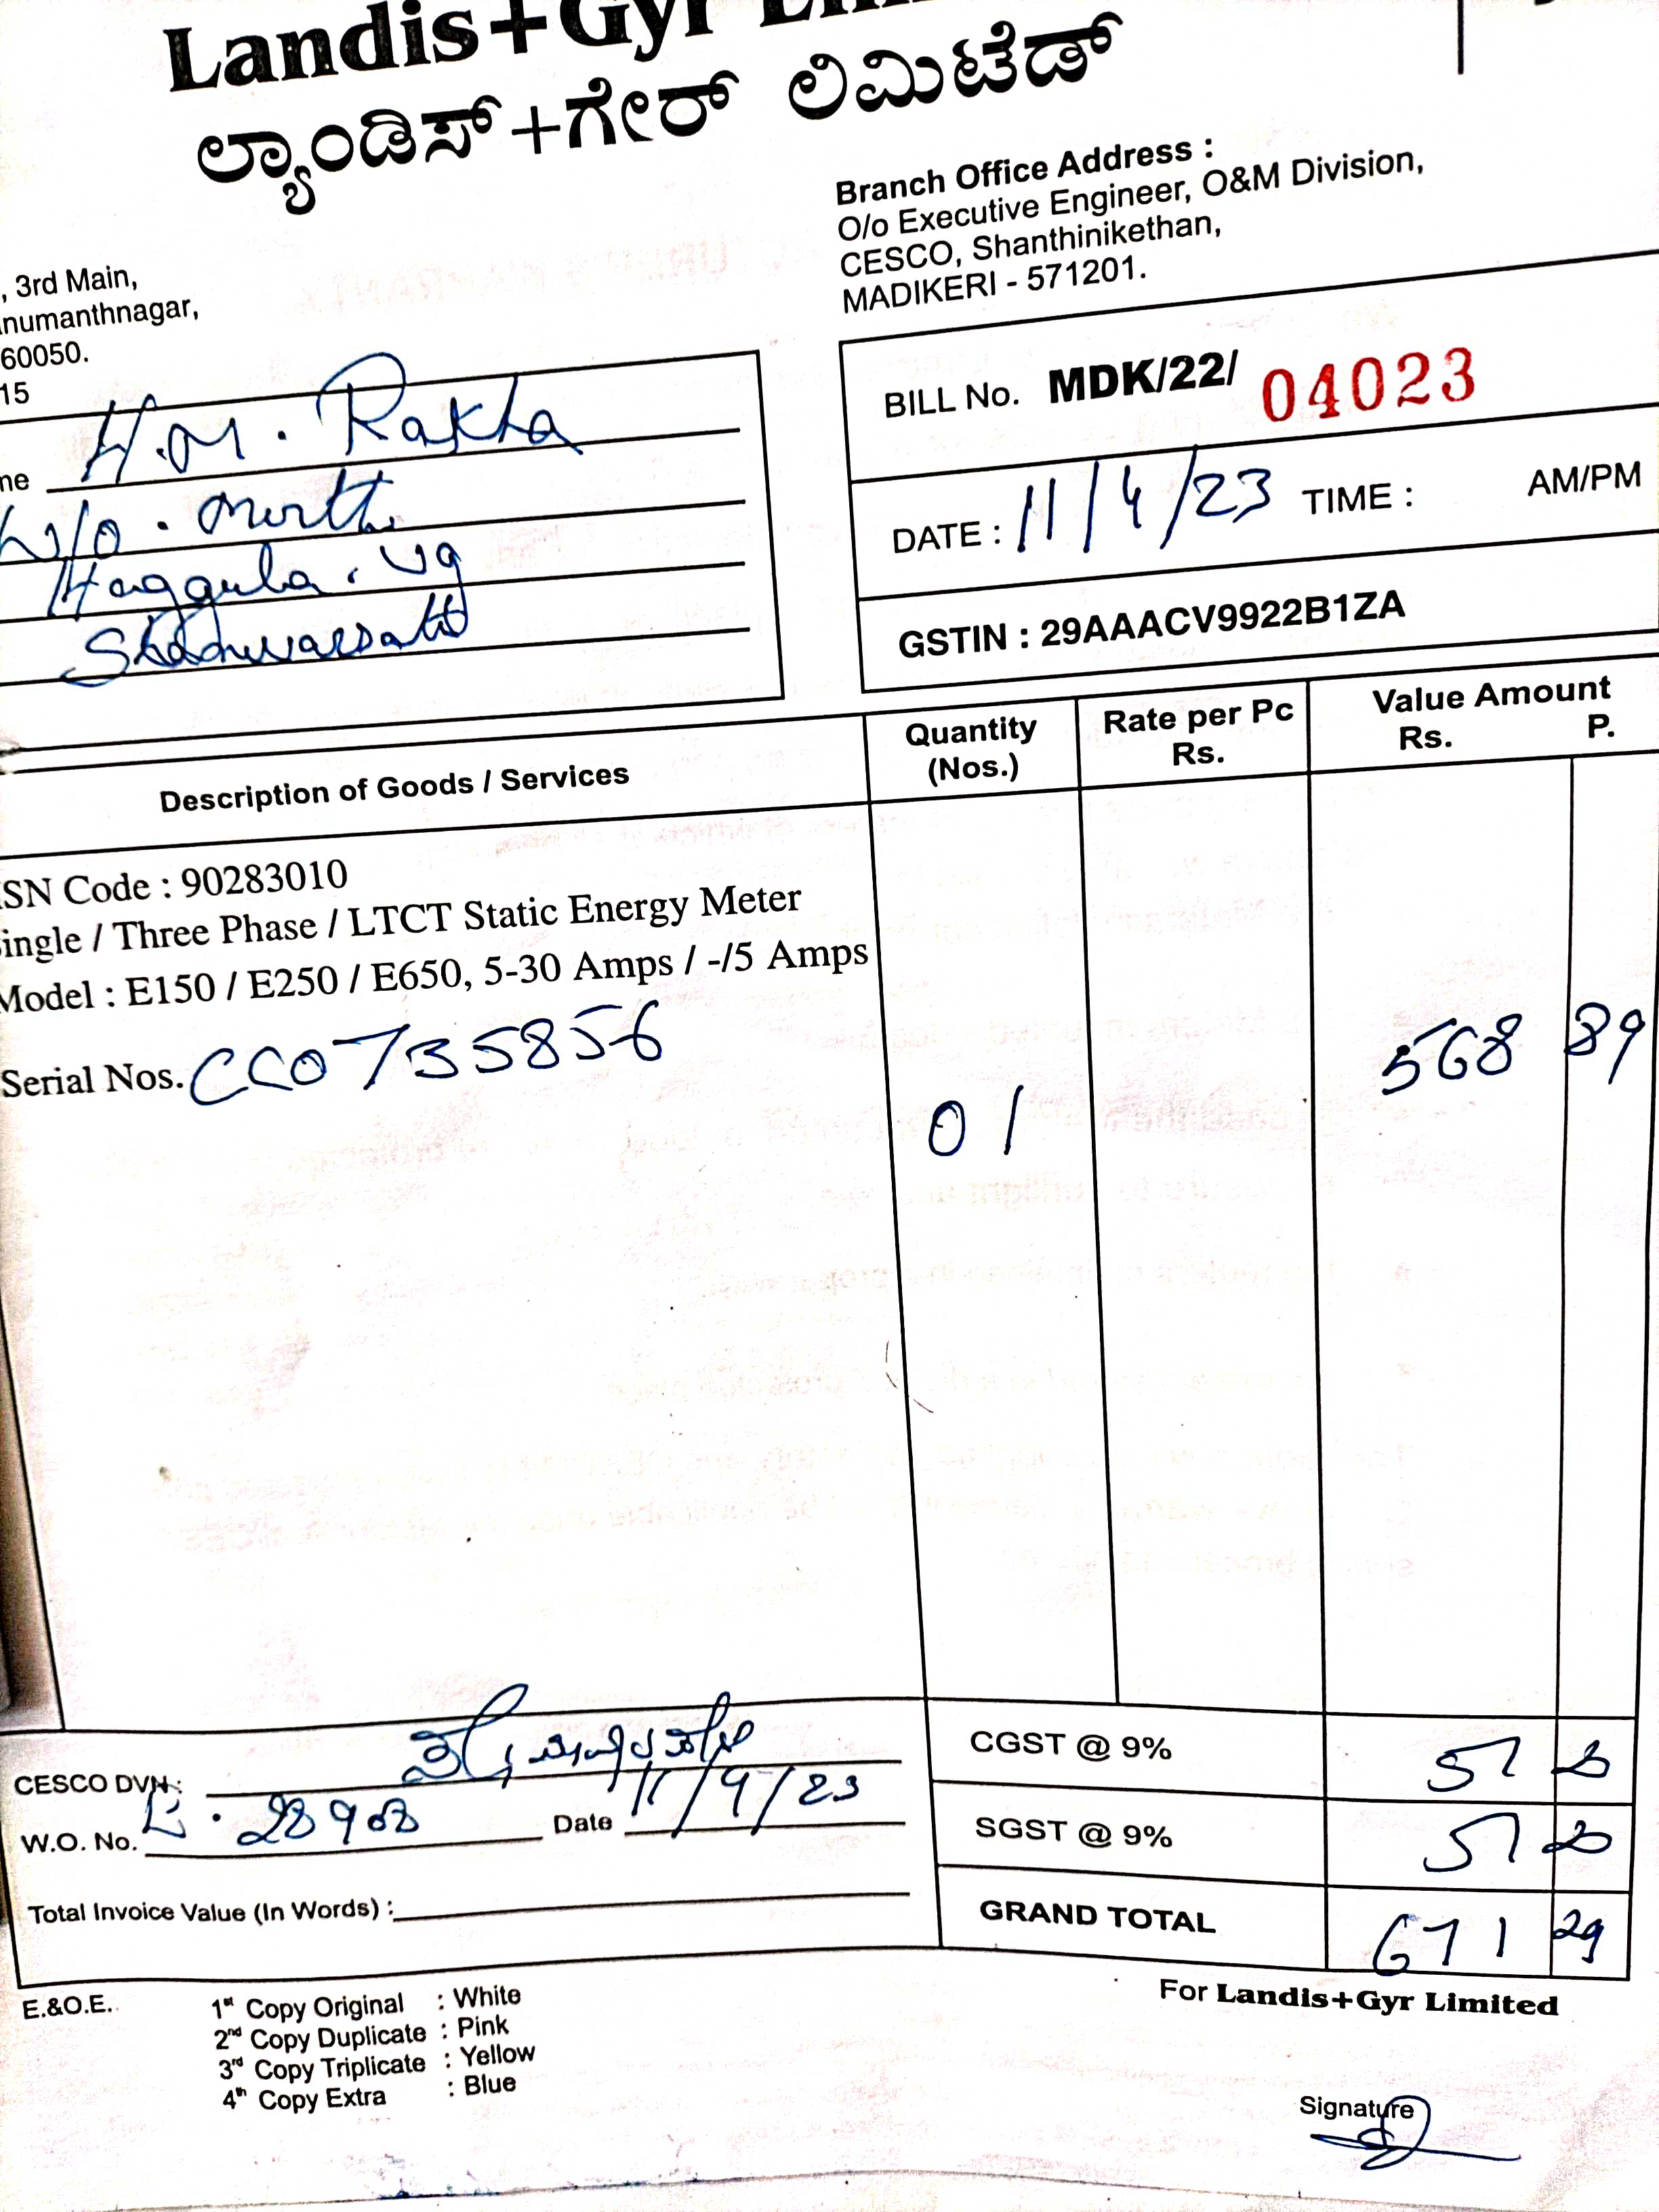 Landis+Gyr
ಲ್ಯಾಂಡಿಸ್+ಗೇರ್ ಲಿಮಿಟೆಡ್
Branch Office Address :
O/o Executive Engineer, O&M Division,
CESCO, Shanthinikethan,
MADIKERI - 571201.
, 3rd Main,
numanthnagar,
60050.
15
H.M. Rakha
W/o.
BILL No. MDK/22/ 04023
DATE : 11/4/23 TIME : AM/PM
GSTIN : 29AAACV9922B1ZA
Description of Goods / Services
Quantity (Nos.)
Rate per Pc Rs.
Value Amount
Rs. P.
SN Code : 90283010
ingle / Three Phase / LTCT Static Energy Meter
Model : E150 / E250 / E650, 5-30 Amps / -/5 Amps
Serial Nos. CC0735856
01
568 89
CESCO DVN.:
W.O. No. 28908 Date 11/9/23
Total Invoice Value (In Words) :
CGST @ 9% 51 20
SGST @ 9% 51 20
GRAND TOTAL 671 29
E.&O.E.
1st Copy Original : White
2nd Copy Duplicate : Pink
3rd Copy Triplicate : Yellow
4th Copy Extra : Blue
For Landis+Gyr Limited
Signature